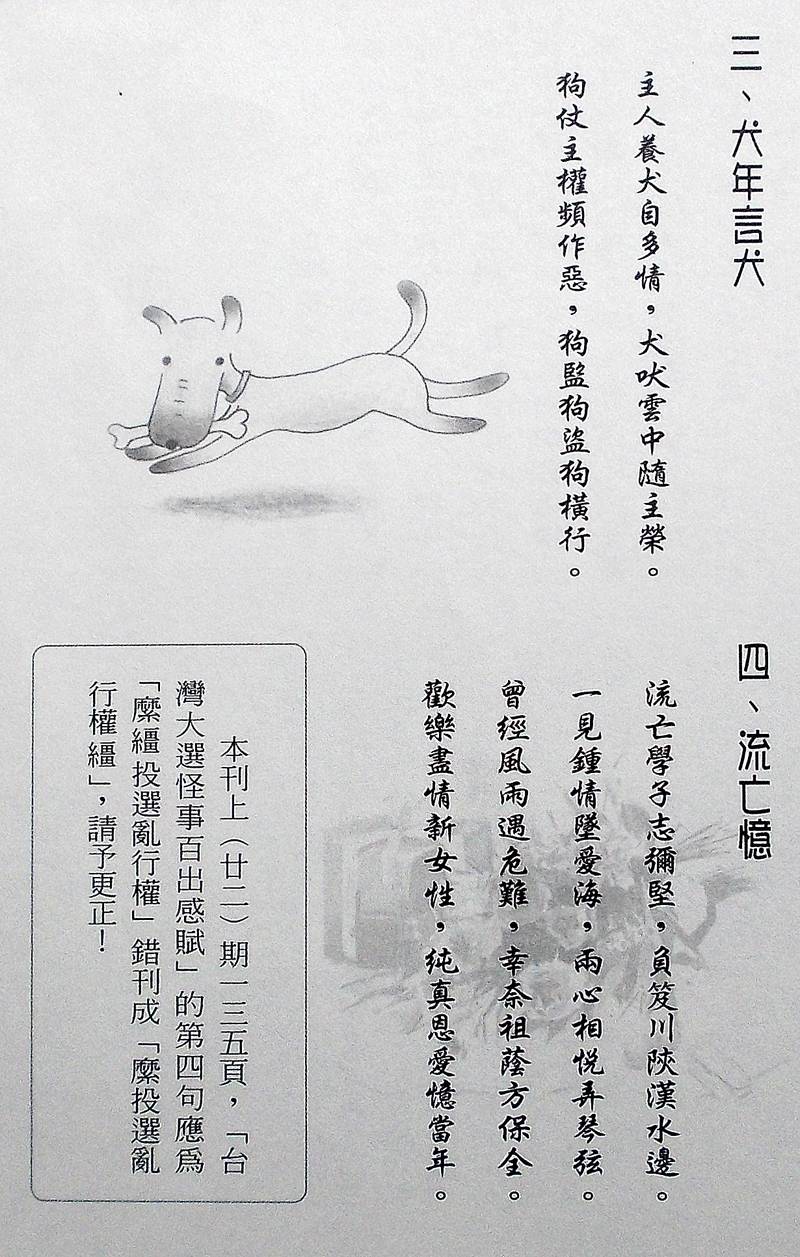 三、犬年言犬
主人養犬自多情，犬吠雲中隨主榮。
狗仗主權頻作惡，狗監狗盜狗橫行。
四、流亡憶
流亡學子志彌堅，負笈川陝漢水邊。
一見鍾情墜愛海，兩心相悅弄琴弦。
曾經風雨遇危難，幸奈祖蔭方保全。
歡樂盡情新女性，純真恩愛憶當年。
本刊上（廿二）期一三五頁，「台
灣大選怪事百出感賦」的第四句應為
「縻繮投選亂行權」錯刊成「縻投選亂
行權繮」，請予更正！